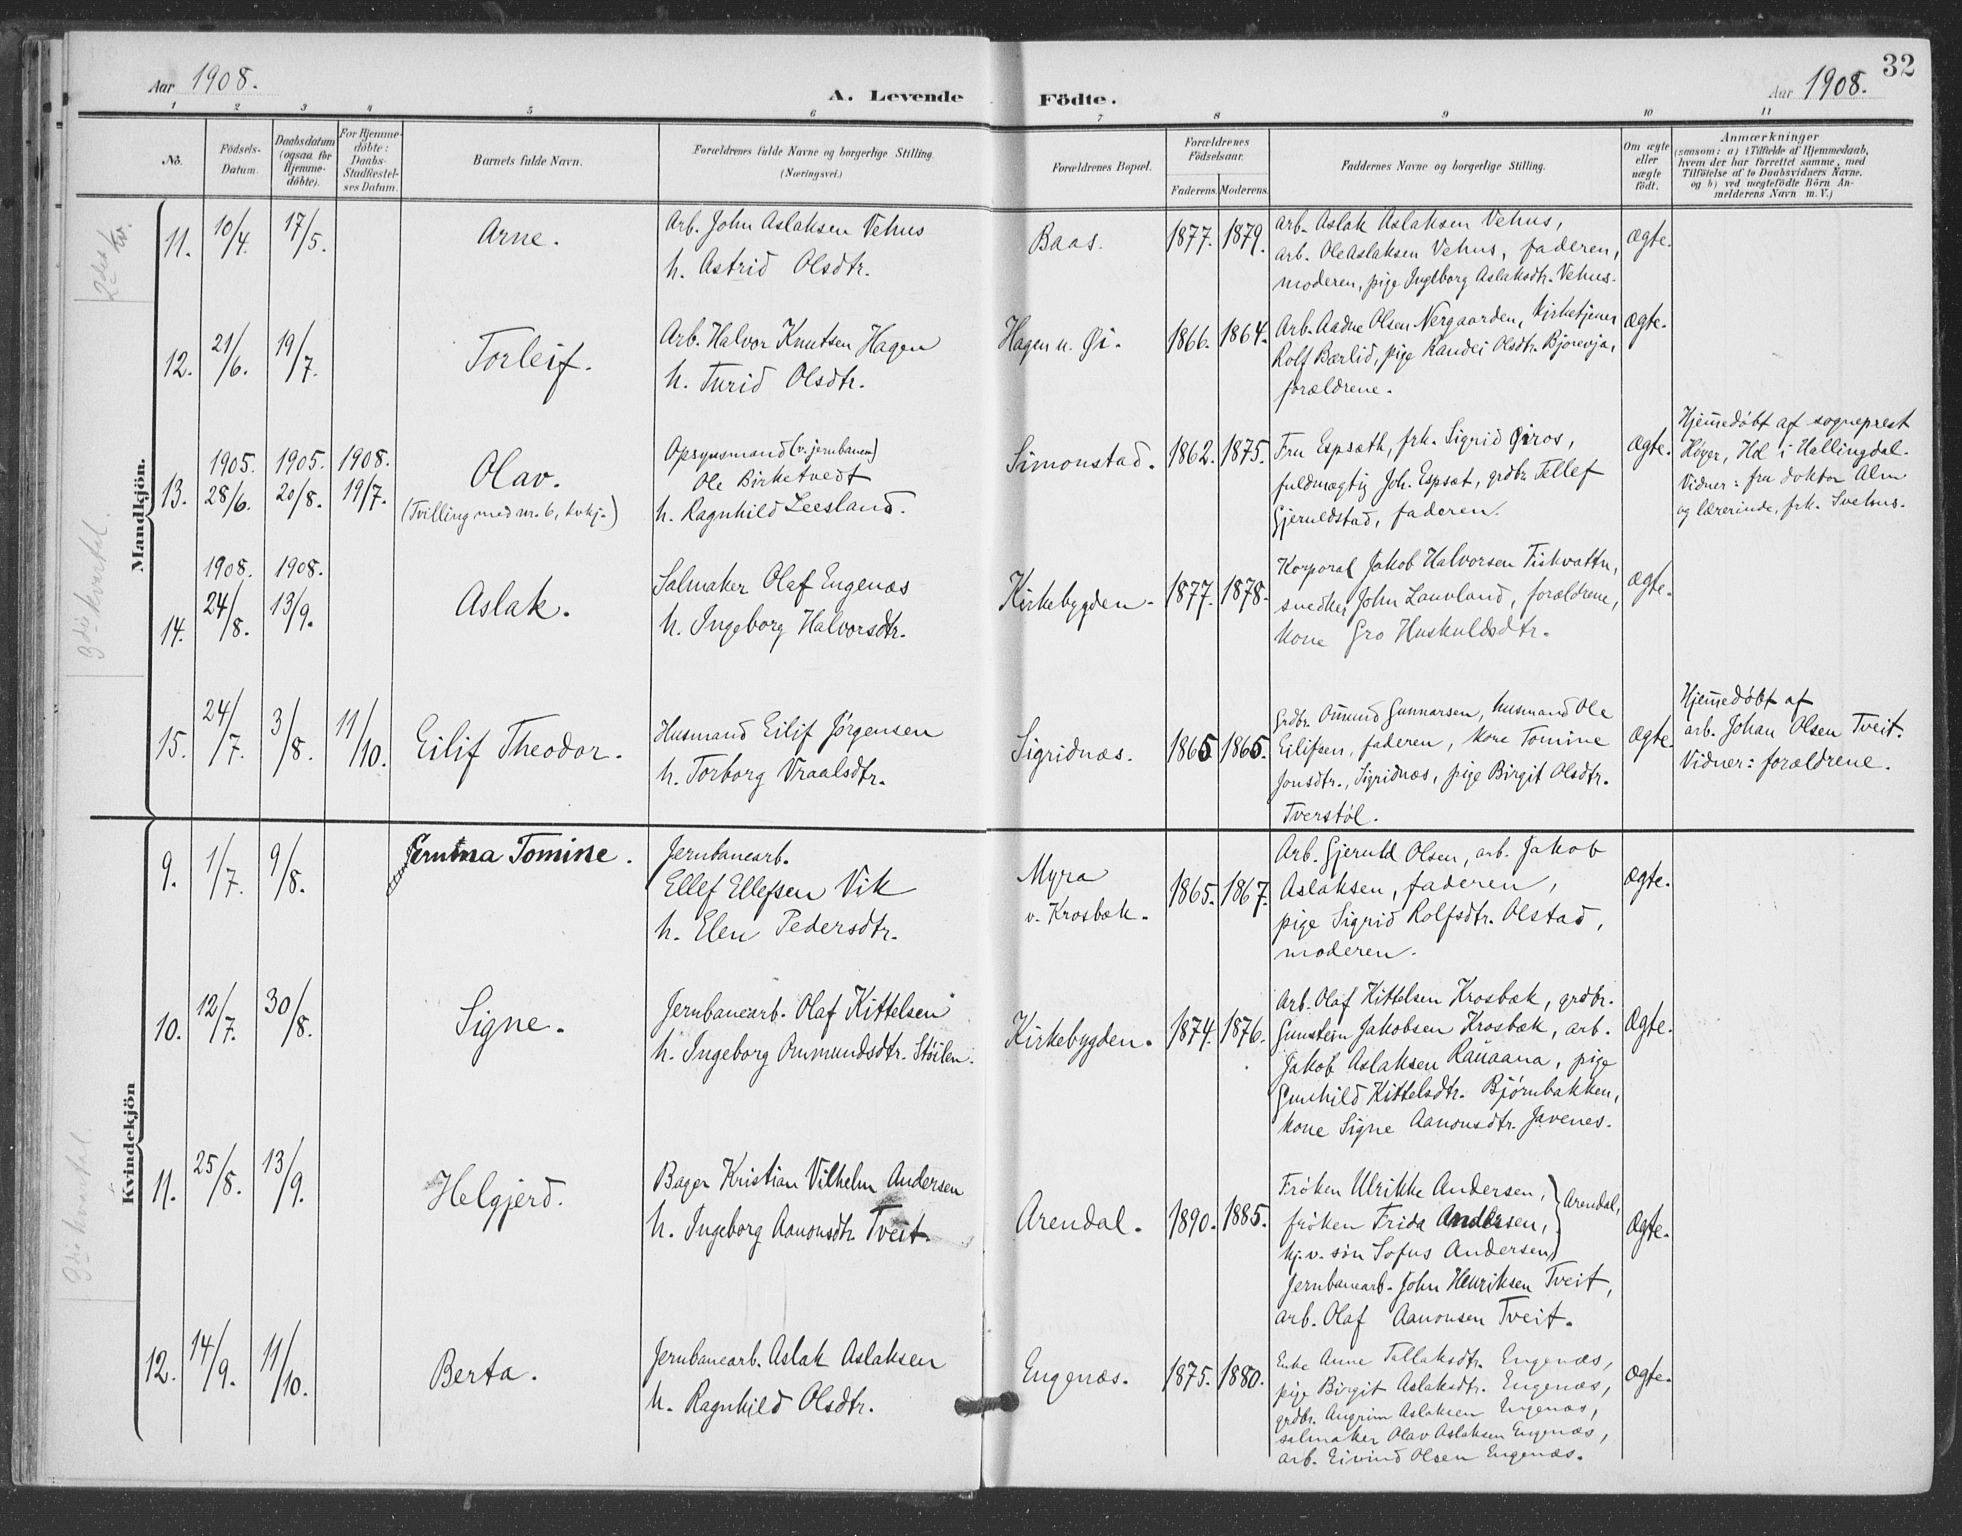 Aar 1908.
A. Levende
Födte.
Aar 1908.
32
1 2 3 4 5 6 7 8 9 10 11
No.
Födsels-
Datum.
Daabsdatum
(ogsaa for
Hjemme-
döbte).
For Hjemme-
döbte:
Daabs-
Stadfæstel-
ses Datum.
Barnets fulde Navn.
Forældrenes fulde Navne og borgerlige Stilling.
(Næringsvei.)
Forældrenes Bopæl.
Forældrenes
Födselsaar.
Faderens. Moderens.
Faddernes Navne og borgerlige Stilling.
Om ægte
eller
uægte
födt.
Anmærkninger
(saasom: a) i Tilfælde af Hjemmedaab,
hvem der har forrettet samme, med
Tilföielse af to Daabsvidners Navne,
og b) ved uægtefödte Börn An-
melderens Navn m. V.)
2det kv.
3die kvartal.
Mandkjön.
11.
10/4.
17/5.
Arne.
Arb. John Aslaksen Vehus
h. Astrid Olsdtr.
Baas.
1877. 1879.
Arb. Aslak Aslaksen Vehus,
arb. Ole Aslaksen Vehus, faderen,
moderen, pige Ingeborg Aslaksdtr. Vehus.
Ægte.
12.
21/6.
19/7.
Torleif.
Arb. Halvor Knutsen Hagen
h. Turid Olsdtr.
Hagen u. Øi.
1866. 1864.
Arb. Aadne Olsen Nergaarden, Kirketjener
Rolf Bærlid, pige Randei Olsdtr. Bjorevja,
forældrene.
Ægte.
13.
1905.
28/6.
1905.
20/8.
1908.
19/7.
Olav.
(Tvilling med nr. 6, kvkj.)
Opsynsmand (v. jernbanen)
Ole Birketvedt
h. Ragnhild Leesland.
Simonstad.
1862. 1875.
Fru Espseth, frk. Sigrid Øiros,
fuldmægtig Joh. Espset, grdbr. Tellef
Gjeruldstad, faderen.
Ægte.
Hjemmedøbt af sogneprest
Høyer, Hol i Hallingdal.
Vidner: fru doktor Alm
og lærerinde, frk. Svehus.
14.
1908.
24/8.
1908.
13/9.
Aslak.
Salmaker Olaf Engenæs
h. Ingeborg Halvorsdtr.
Kirkebygden.
1877. 1878.
Korporal Jakob Halvorsen Fiskvattn,
snedker John Lauvland, forældrene,
kone Gro Huskuldsdtr.
Ægte.
15.
24/7.
3/8.
11/10.
Eilif Theodor.
Husmand Eilif Jørgensen
h. Torborg Vraalsdtr.
Sigridnæs.
1865 1865.
Grdbr. Omund Gunnarsen, husmand Ole
Eilifsen, faderen, kone Tomine
Jonsdtr., Sigridnæs, pige Birgit Olsdtr.
Tverstøl.
Ægte.
Hjemmedøbt af
arb. Johan Olsen Tveit.
Vidner: forældrene.
Kvindekjön
3die kvartal.
9.
1/7.
9/8.
Tomine.
Jernbanearb.
Ellef Ellefsen Vik
h. Elen Pedersdtr.
Myra
v. Krosbæk.
1865. 1867.
Arb. Gjeruld Olsen, arb. Jakob
Aslaksen, faderen,
pige Sigrid Rolfsdtr. Olstad,
moderen.
Ægte.
10.
12/7.
30/8.
Signe.
Jernbanearb. Olaf Kittelsen
h. Ingeborg Ommundsdtr. Støilen.
Kirkebygden.
1874. 1876.
Arb. Olaf Kittelsen Krosbæk, grdbr.
Gunstein Jakobsen Krosbæk, arb.
Jakob Aslaksen Rauaana, pige
Gunhild Kittelsdtr. Bjørnbakken,
kone Signe Aanonsdtr. Javenes.
Ægte.
11.
25/8.
13/9.
Helgjerd.
Bager Kristian Vilhelm Andersen
h. Ingeborg Aanonsdtr. Tveit.
Arendal.
1890. 1885.
Frøken Ulrikke Andersen,
frøken Frida Andersen,
hj.v. søn Sofus Andersen,
Arendal,
jernbanearb. John Henriksen Tveit,
arb. Olaf Aanonsen Tveit.
Ægte.
12.
14/9.
11/10.
Berta.
Jernbanearb. Aslak Aslaksen
h. Ragnhild Olsdtr.
Engenæs.
1875. 1880.
Enke Anne Tallaksdtr. Engenæs,
pige Birgit Aslaksdtr. Engenæs,
grdbr. Angrim Aslaksen Engenæs,
salmaker Olav Aslaksen Engenæs,
arb. Eivind Olsen Engenæs.
Ægte.